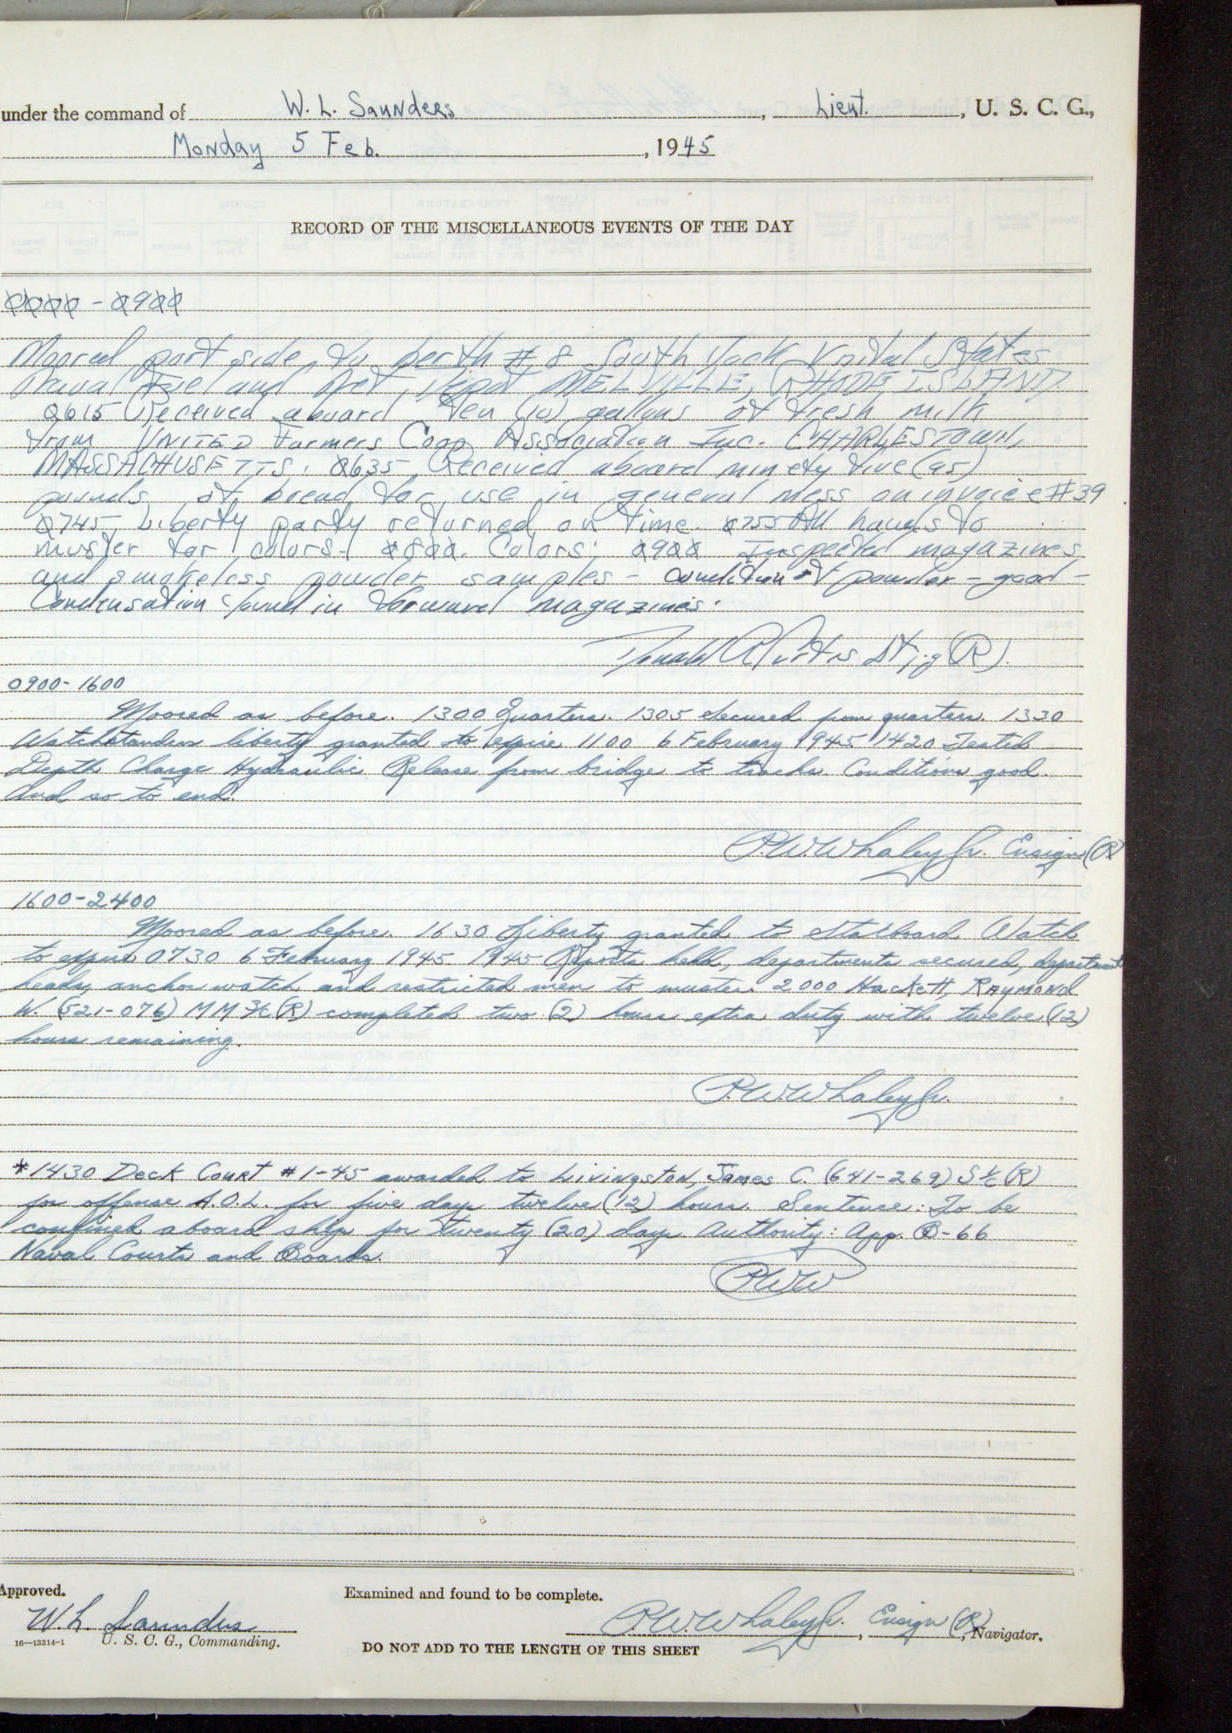 under the command of W. L. Saunders, Lieut., U. S. C. G.,
Monday 5 Feb., 1945
RECORD OF THE MISCELLANEOUS EVENTS OF THE DAY
0000 - 0900
Moored port side to berth #8 South Dock United States
Naval Fuel and Net Depot, MELVILLE, RHODE ISLAND
0615 Received aboard ten (10) gallons of fresh milk
from UNITED Farmers Coop Association Inc. CHARLESTOWN,
MASSACHUSETTS. 0635 Received aboard ninety five (95)
pounds of bread for use in general mess on invoice #39
0745 Liberty party returned on time. 0755 All hands to
muster for colors - 0800. Colors; 0900 Inspected magazines
and smokeless powder samples - condition of powder - good -
Condensation found in forward magazines.
Donald R. (R).
0900-1600
Moored as before. 1300 Quarters. 1305 secured from quarters. 1330
Watchstanders liberty granted to expire 1100 6 February 1945 1420 Tested
Depth Charge Hydraulic Release from bridge to tracks. Conditions good.
And so to end.
P.W. Whaley Jr. Ensign (R)
1600-2400
Moored as before. 1630 Liberty granted to Starboard Watch
to expire 0730 6 February 1945 1945 Reports held, departments secured, department
heads, anchor watch and restricted men to muster. 2000 Hackett, RAYMOND
W. (521-076) MM3/c (R) completed two (2) hours extra duty with twelve (12)
hours remaining.
P.W. Whaley Jr.
*1430 Deck Court #1-45 awarded to Livingston, James C. (641-269) S1/c (R)
for offense A.O.L. for five days twelve (12) hours. Sentence: To be
confined aboard ship for twenty (20) days Authority: App. B-66
Naval Courts and Boards.
PWW
Approved.
Examined and found to be complete.
W L Saunders
P.W. Whaley Jr., Ensign (R), Navigator.
16—13214-1 U. S. C. G., Commanding.
DO NOT ADD TO THE LENGTH OF THIS SHEET